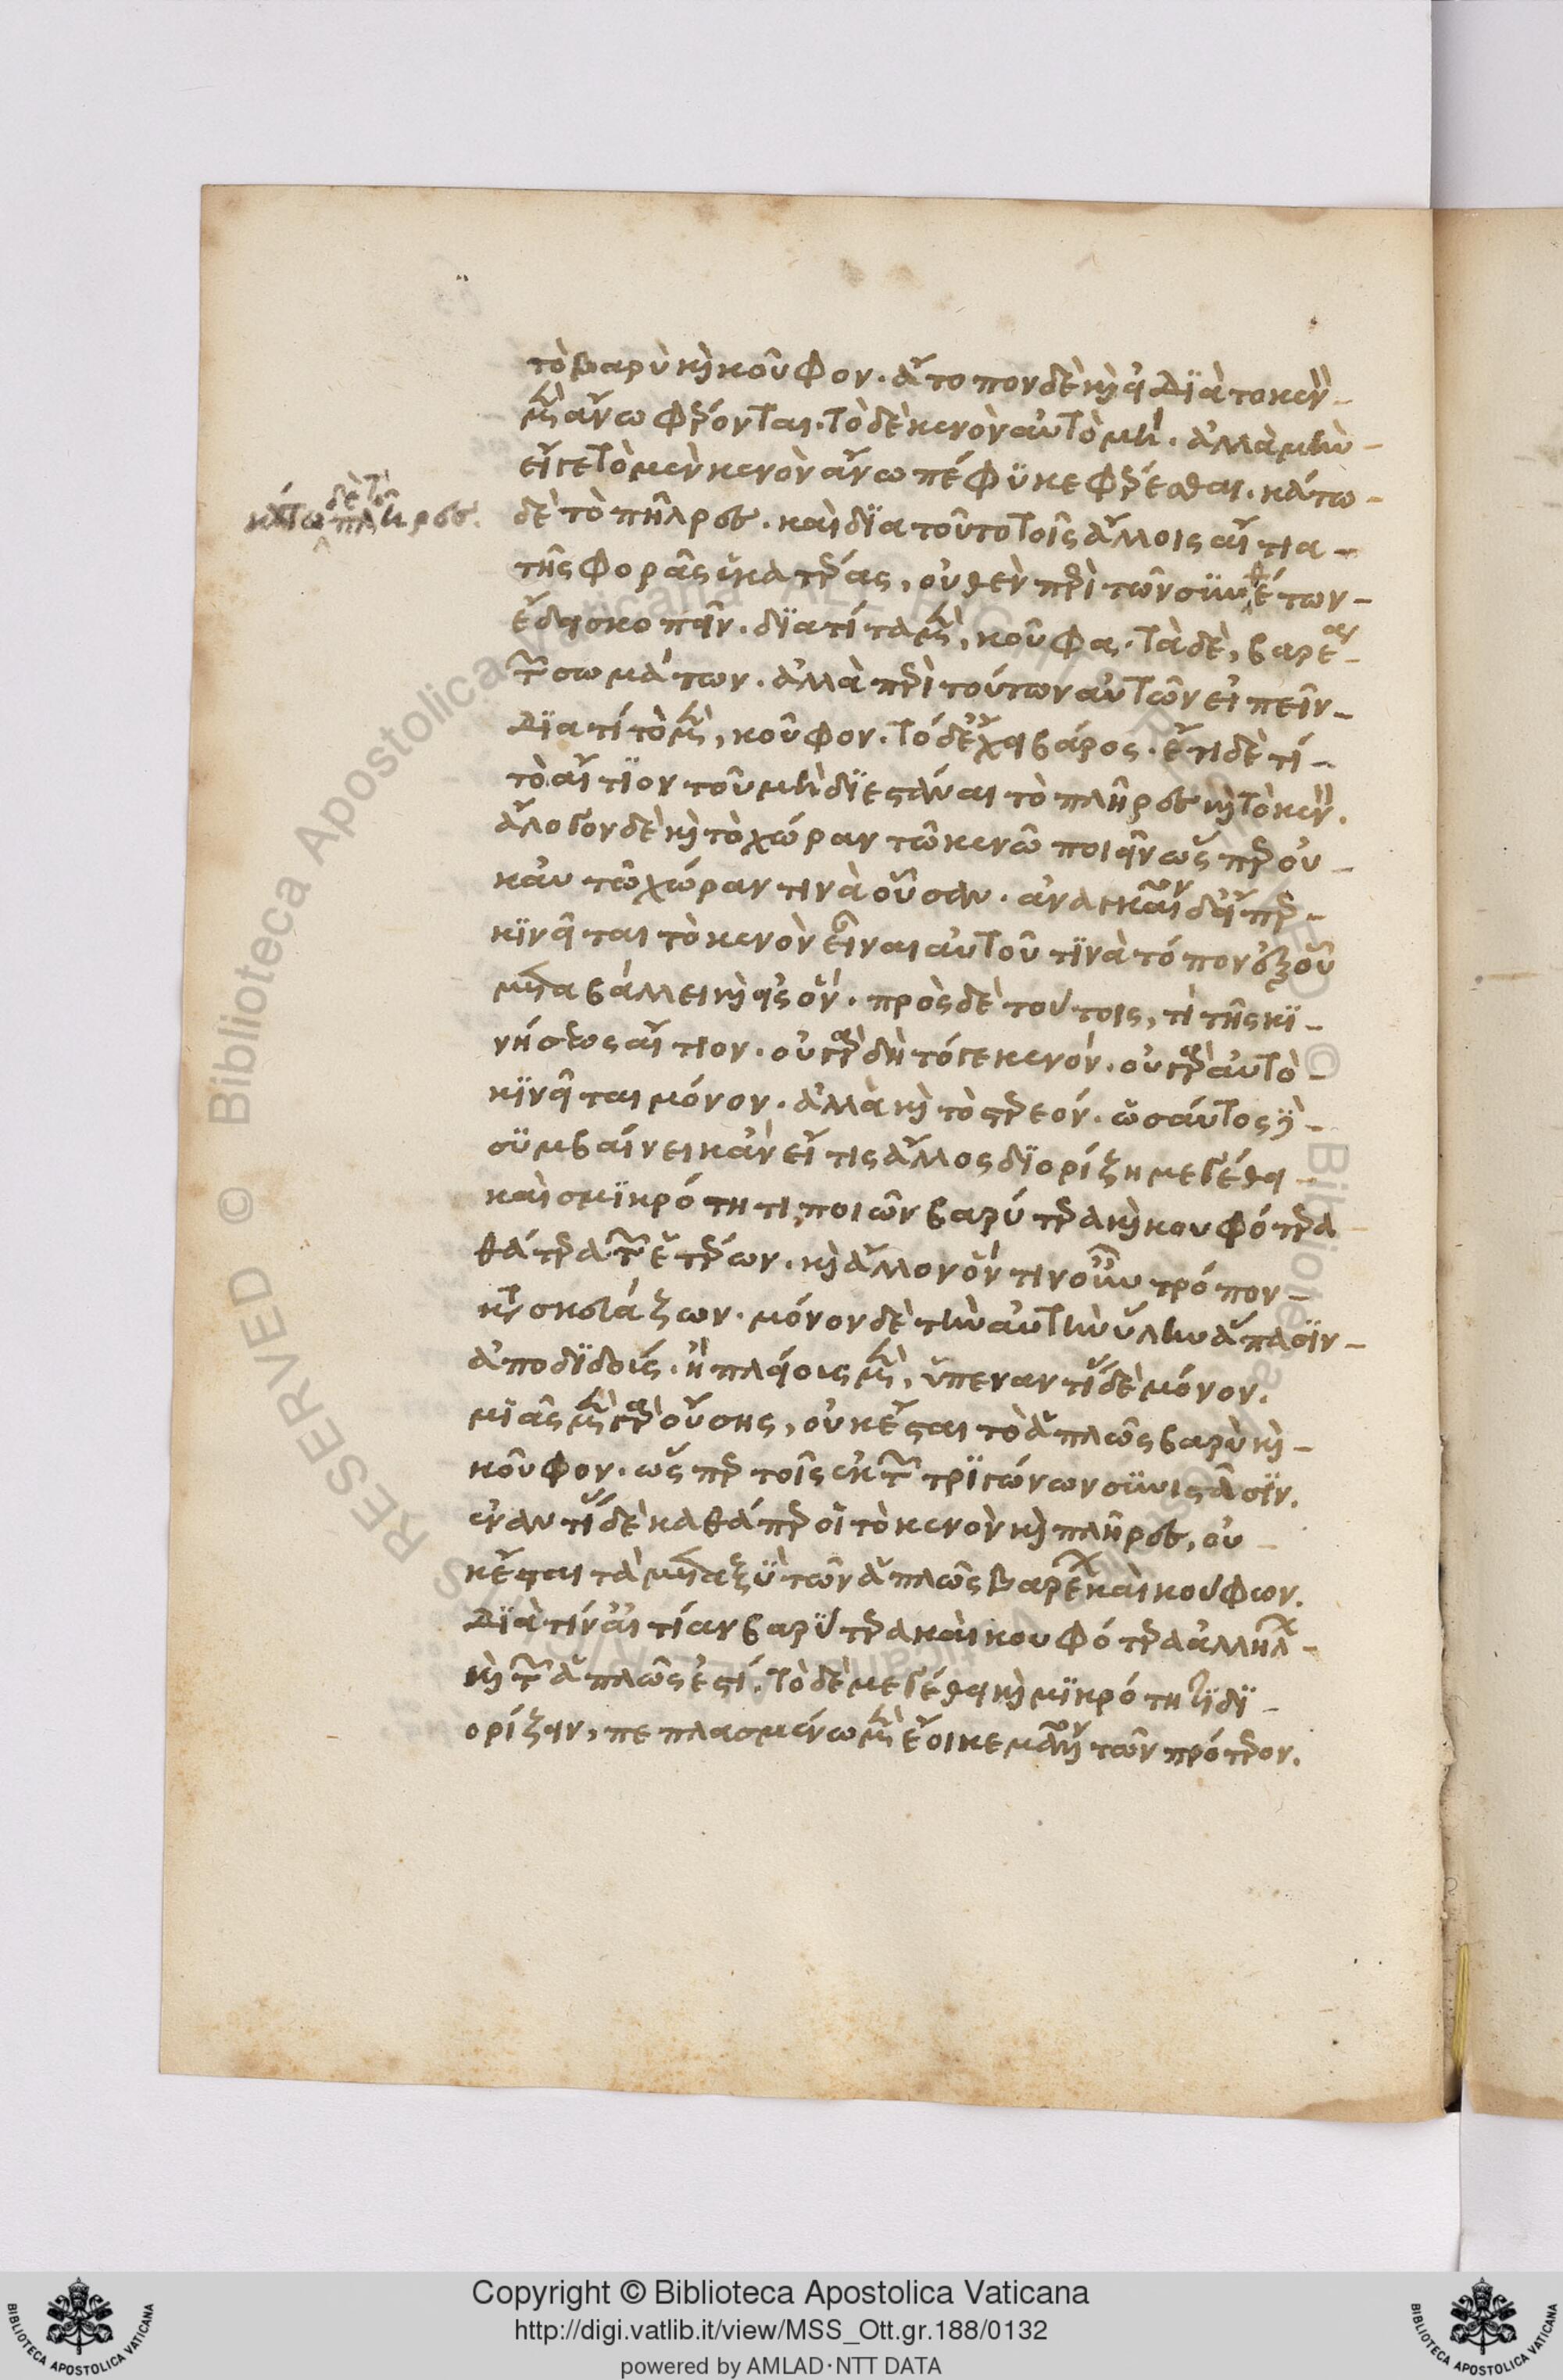 τὸ βαρὺ κὶ κοῦφον. ἄτοπον δὲ κὶ εἰ διὰ το κεν
μὲν ἄνω φέρονται. τὸ δὲ κενὸν αὐτὸ μὴ. ἀλλὰ μὴν
εἴγε τὸ μὲν κενὸν ἄνω πέφϋκε φέρεσθαι. κάτω
δὲ τὸ πλῆρες. καὶ δϊα τοῦτο τοῖς ἄλλοις αἴτια
τῆς φορᾶς ἑκατέρας, οὐθὲν περὶ τῶν σϋνθέτων
ἔδει σκοπεῖν. δϊατί τὰ μὲν, κοῦφα. τὰ δὲ, βαρέα
τῶν σωμάτων. ἀλλὰ περὶ τούτων αὐτῶν εἰπεῖν
Δϊατί τὸ μὲν, κοῦφον. τὸ δ' ἔχει βάρος. ἔτι δὲ τί
τὸ αἴτϊον τοῦ μὴ δϊεστάναι τὸ πλῆρες κὶ τὸ κεν.
ἄλογον δὲ κὶ τὸ χώραν τῶ κενῶ ποιεῖν ὥσπερ οὐ
κ αὐτὸ χώραν τινὰ οὖσαν. ἀναγκαῖον δ' εἴπερ
κϊνεῖται τὸ κενὸν εἶναι αὐτοῦ τϊνὰ τόπον ἐξ οὗ
μεταβάλλει κὶ εἰς ὅν. πρὸς δὲ τούτοις, τί τῆς κϊ
νήσεως αἴτιον. οὐ γὰρ δὴ τό γε κενόν. οὐ γὰρ αὐτὸ
κϊνεῖται μόνον. ἀλλὰ κὶ τὸ στερεόν. ὡσαύτος δὲ
σϋμβαίνει κἂν εἴ τις ἄλλος δϊορίζη μεγέθει
καὶ σμϊκρότητι, ποιῶν βαρύτερα κὶ κουφότερα
θάτερα τῶν ἑτέρων. κὶ ἄλλον ὅν τινοῦν τρόπον
κατασκευάζων. μόνον δὲ τὴν αὐτὴν ὕλην ἅπασϊν
ἀποδϊδοίς. ἢ πλείοις μὲν, ὑπεναντί δὲ μόνον.
μϊᾶς μὲν γὰρ οὔσης, οὐκ ἔσται τὸ ἁπλῶς βαρὺ κὶ
κοῦφον. ὥσπερ τοῖς ἐκ τῶν τρϊγώνων σϋνιστᾶσϊν.
ἐναντί δὲ καθάπερ οἱ τὸ κενὸν κὶ πλῆρες, οὐ
κ ἔσται τὰ μεταξϋ τῶν ἁπλῶς βαρέων καὶ κούφων.
Δϊὰ τίν' αἰτίαν βαρύτερα καὶ κουφότερα ἀλλήλων
κὶ τῶν ἁπλῶς ἐστί. τὸ δὲ μεγέθει κὶ μϊκρότητϊ δϊ
ορίζειν, πεπλασμένω μὲν ἔοικε μᾶλλον τῶν πρότερον.
κάτω δὲ τὸ πλῆρες.
Copyright © Biblioteca Apostolica Vaticana
http://digi.vatlib.it/view/MSS_Ott.gr.188/0132
powered by AMLAD·NTT DATA
BIBLIOTECA APOSTOLICA VATICANA
BIBLIOTECA APOSTOLICA VATICANA